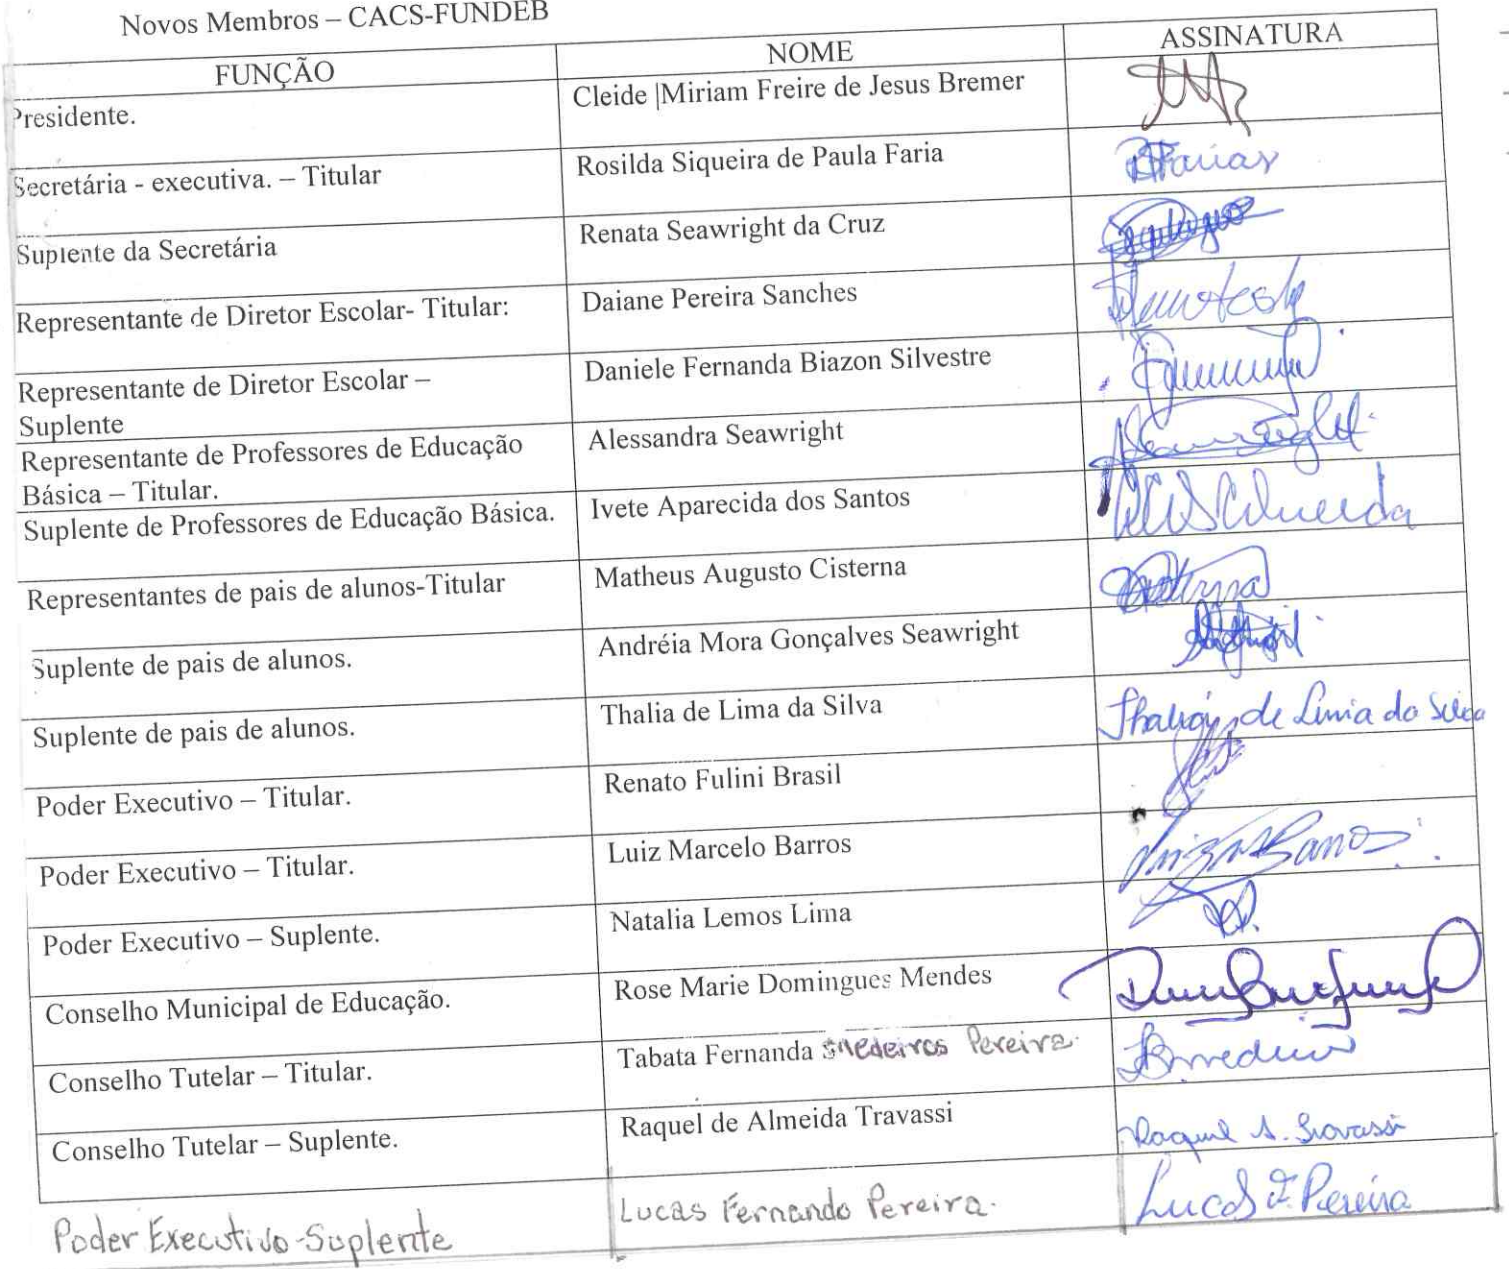 Novos Membros – CACS-FUNDEB
FUNÇÃO NOME ASSINATURA
Presidente. Cleide |Miriam Freire de Jesus Bremer
Secretária - executiva. – Titular Rosilda Siqueira de Paula Faria
Suplente da Secretária Renata Seawright da Cruz
Representante de Diretor Escolar- Titular: Daiane Pereira Sanches
Representante de Diretor Escolar – Daniele Fernanda Biazon Silvestre
Suplente
Representante de Professores de Educação Alessandra Seawright
Básica – Titular.
Suplente de Professores de Educação Básica. Ivete Aparecida dos Santos
Representantes de pais de alunos-Titular Matheus Augusto Cisterna
Suplente de pais de alunos. Andréia Mora Gonçalves Seawright
Suplente de pais de alunos. Thalia de Lima da Silva Thalia de Lima da Silva
Poder Executivo – Titular. Renato Fulini Brasil
Poder Executivo – Titular. Luiz Marcelo Barros
Poder Executivo – Suplente. Natalia Lemos Lima
Conselho Municipal de Educação. Rose Marie Domingues Mendes
Conselho Tutelar – Titular. Tabata Fernanda Medeiros Pereira.
Conselho Tutelar – Suplente. Raquel de Almeida Travassi Raquel A. Travassi
Poder Executivo-Suplente Lucas Fernando Pereira. Lucas F. Pereira